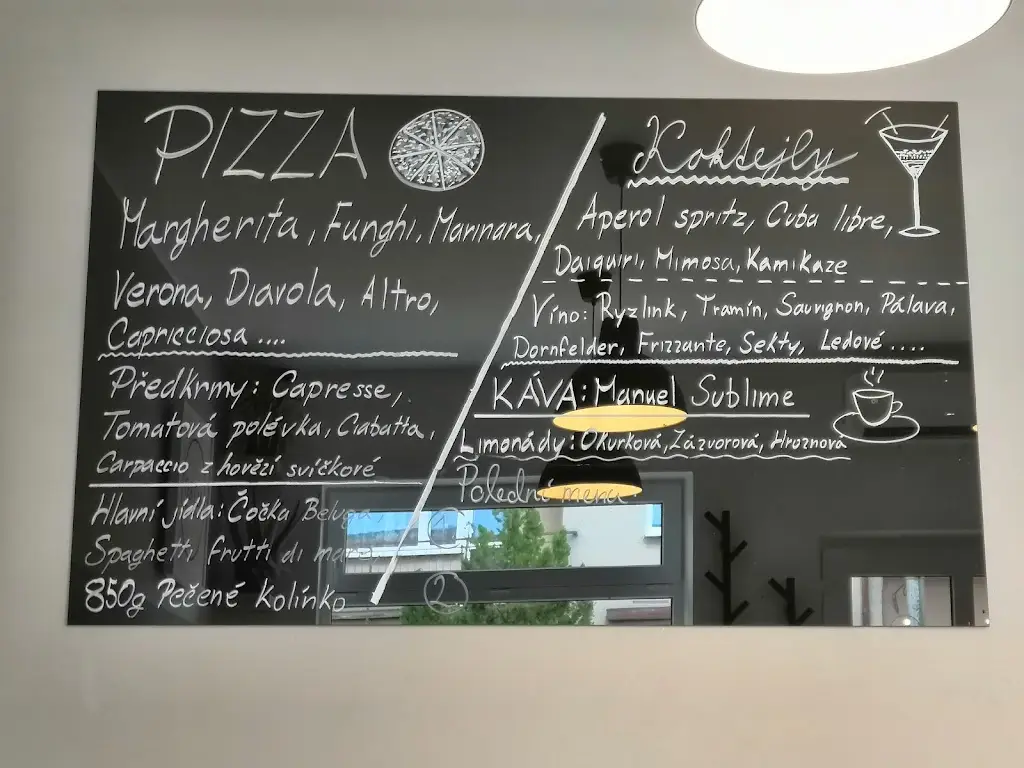 PIZZA
Margherita, Funghi, Marinara,
Verona, Diavola, Altro,
Capricciosa ....
Předkrmy: Capresse,
Tomatová polévka, Ciabatta,
Carpaccio z hovězí svíčkové
Hlavní jídla: Čočka Beluga
Spaghetti frutti di mare
850g Pečené Kolínko
Koktejly
Aperol spritz, Cuba libre,
Daiquiri, Mimosa, Kamikaze
Víno: Ryzlink, Tramín, Sauvignon, Pálava,
Dornfelder, Frizzante, Sekty, Ledové ....
KÁVA: Manuel Sublime
Limonády: Okurková, Zázvorová, Hroznová
Polední menu
1
2